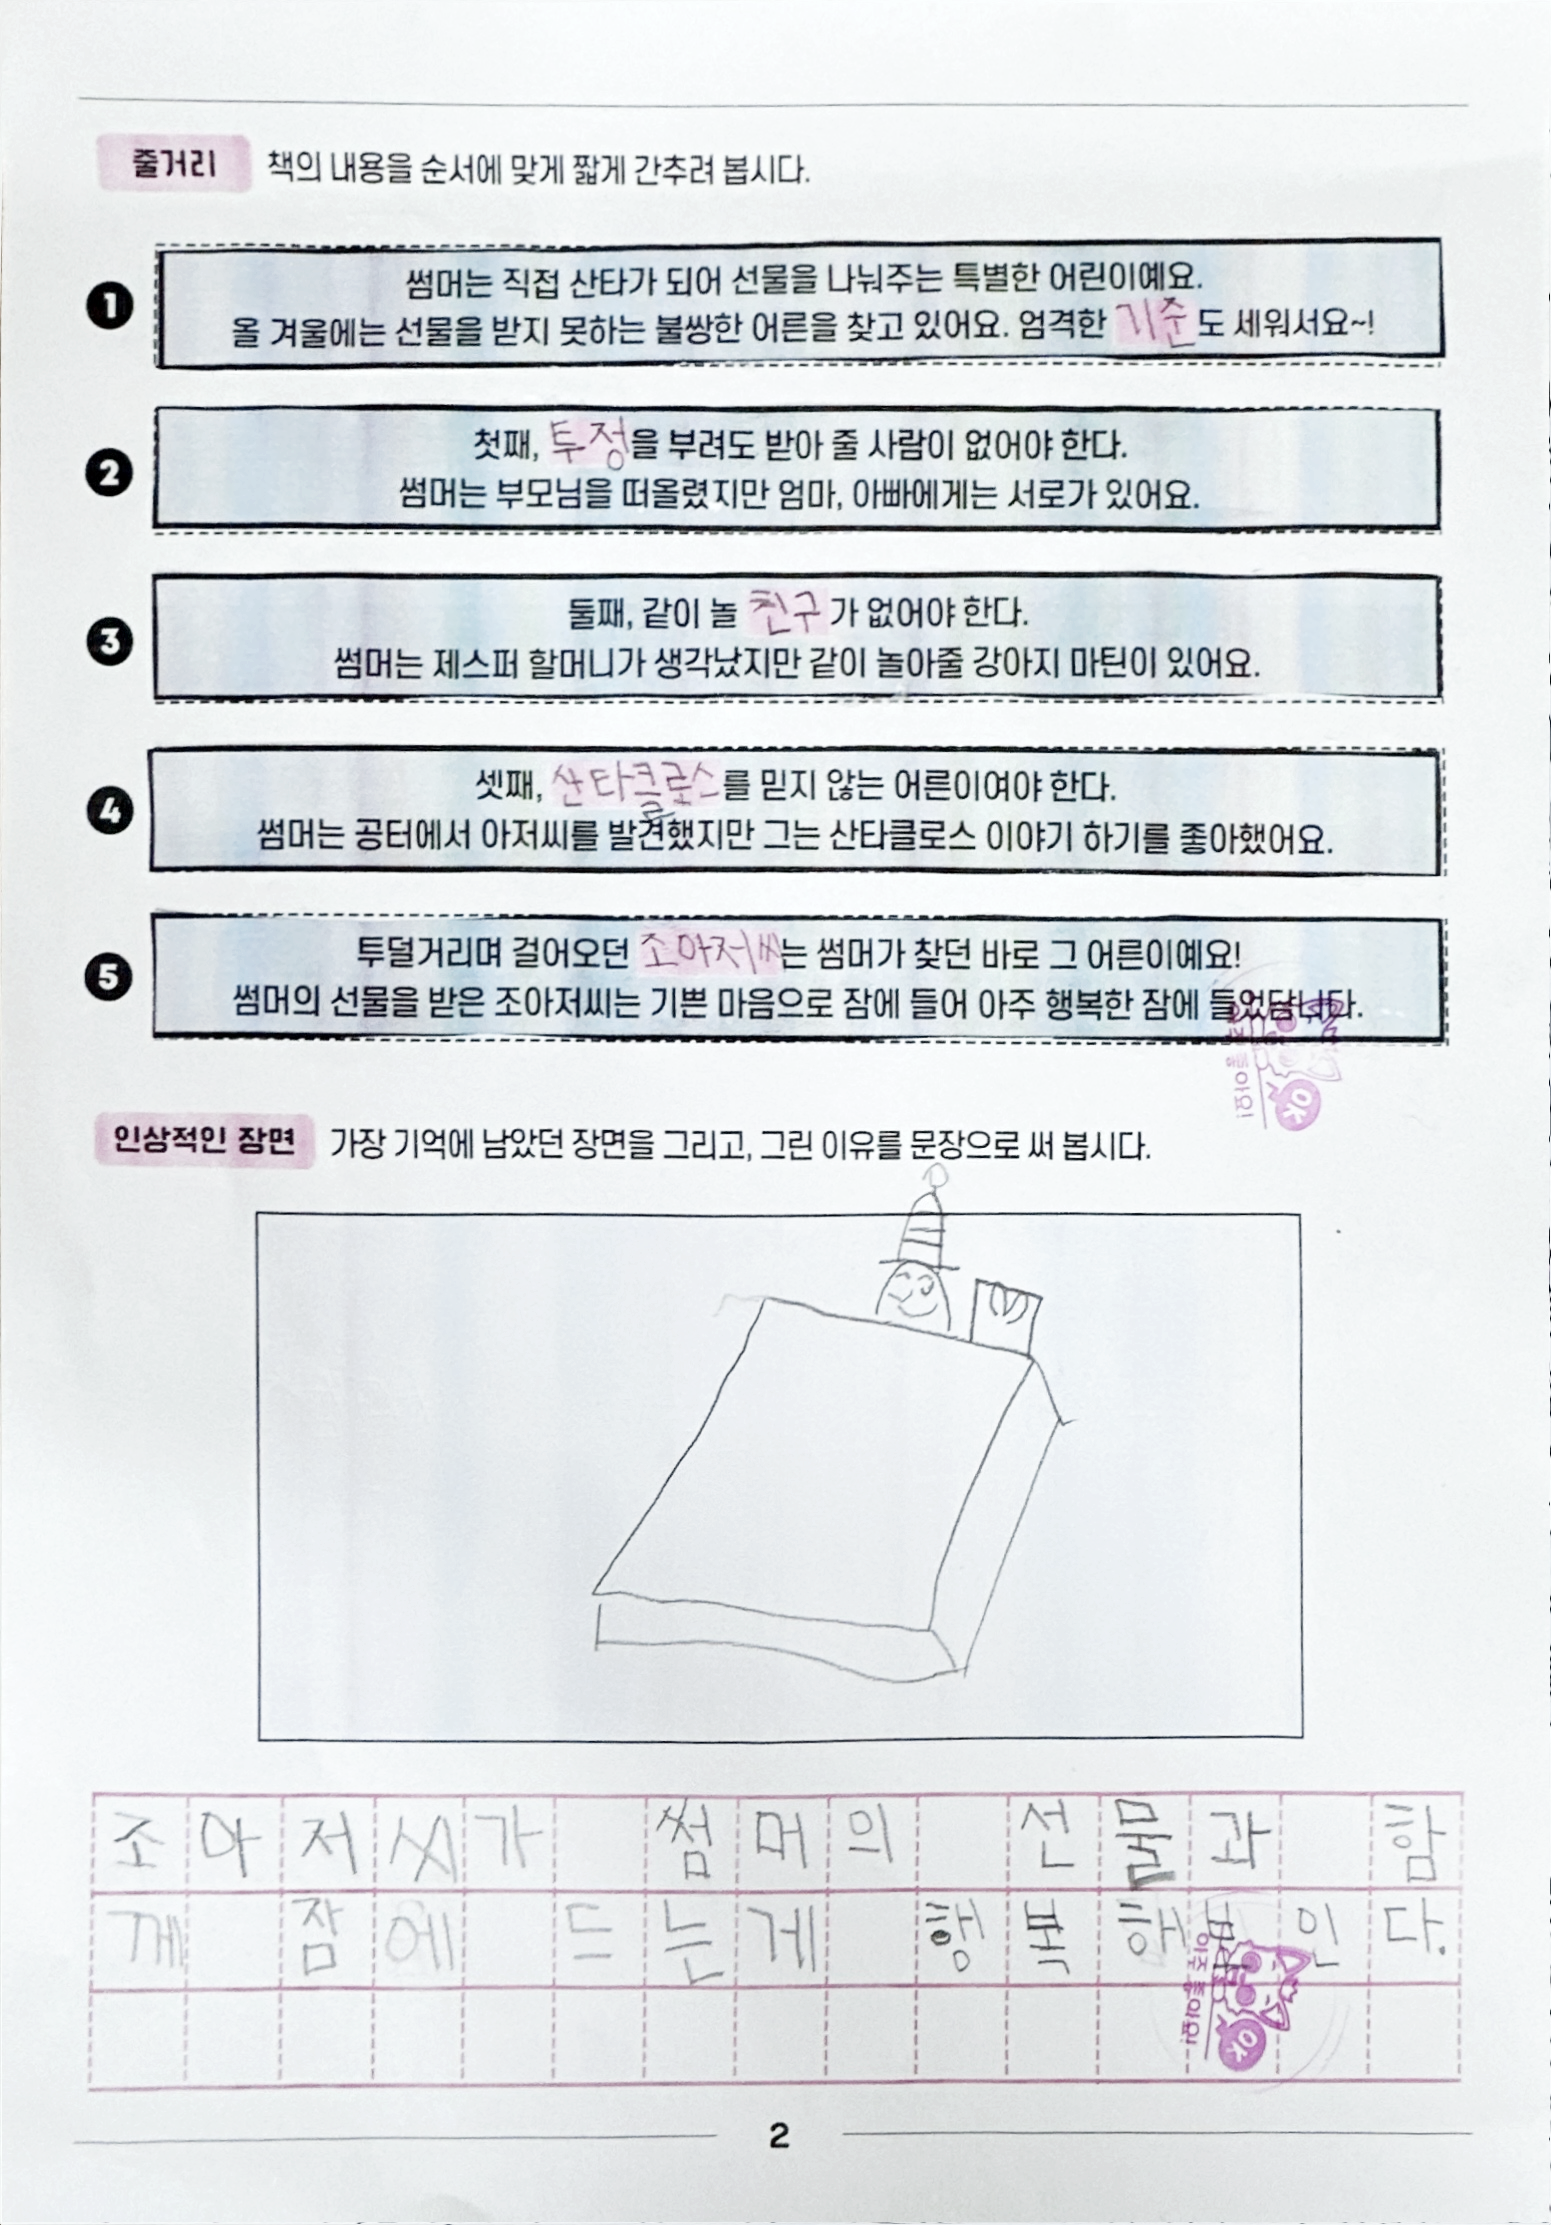 줄거리 책의 내용을 순서에 맞게 짧게 간추려 봅시다.
1 썸머는 직접 산타가 되어 선물을 나눠주는 특별한 어린이예요.
올 겨울에는 선물을 받지 못하는 불쌍한 어른을 찾고 있어요. 엄격한 기준도 세워서요~!
2 첫째, 투정을 부려도 받아 줄 사람이 없어야 한다.
썸머는 부모님을 떠올렸지만 엄마, 아빠에게는 서로가 있어요.
3 둘째, 같이 놀 친구가 없어야 한다.
썸머는 제스퍼 할머니가 생각났지만 같이 놀아줄 강아지 마틴이 있어요.
4 셋째, 산타크로스를 믿지 않는 어른이여야 한다.
클
썸머는 공터에서 아저씨를 발견했지만 그는 산타클로스 이야기 하기를 좋아했어요.
5 투덜거리며 걸어오던 조아저씨는 썸머가 찾던 바로 그 어른이예요!
썸머의 선물을 받은 조아저씨는 기쁜 마음으로 잠에 들어 아주 행복한 잠에 들었답니다.
아주좋아요!
OK
인상적인 장면 가장 기억에 남았던 장면을 그리고, 그린 이유를 문장으로 써 봅시다.
조아저씨가 썸머의 선물과 함
께 잠에 드는게 행복해보인다.
아주좋아요!
OK
2